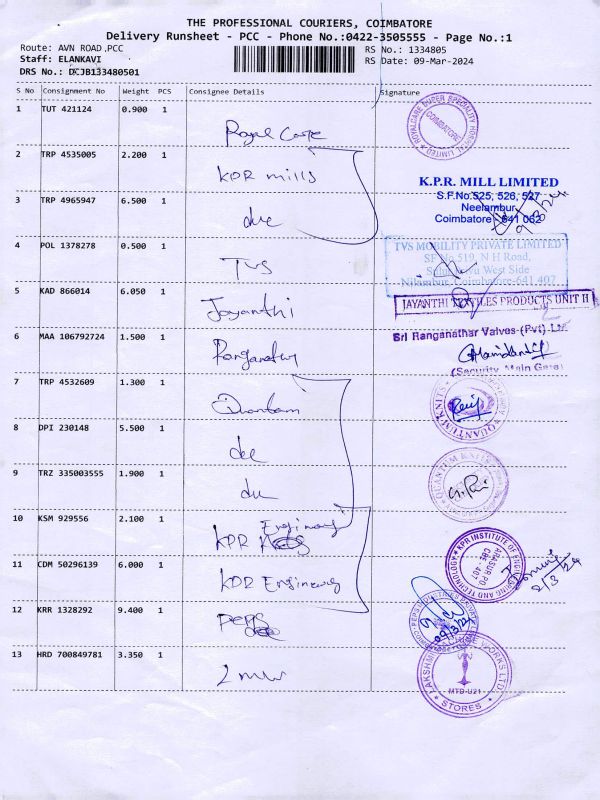 THE PROFESSIONAL COURIERS, COIMBATORE
Delivery Runsheet - PCC - Phone No.:0422-3505555 - Page No.:1
Route: AVN ROAD,PCC RS No.: 1334805
Staff: ELANKAVI RS Date: 09-Mar-2024
DRS No.: DCJB133480501
S No Consignment No Weight PCS Consignee Details Signature
1 TUT 421124 0.900 1 Royal Care
ROYALCARE SUPER SPECIALITY HOSPITAL LIMITED COIMBATORE
2 TRP 4535005 2.200 1 KPR mills
K.P.R. MILL LIMITED
S.F.No.525, 526, 527
Neelambur
Coimbatore - 641 062
3 TRP 4965947 6.500 1
4 POL 1378278 0.500 1 TVS
TVS MOBILITY PRIVATE LIMITED
SF No 519, N H Road,
West Side
Nilambur, Coimbatore-641 407
5 KAD 866014 6.050 1 Jayanthi
JAYANTHI TEXTILES PRODUCTS UNIT II
6 MAA 106792724 1.500 1
Sri Ranganathar Valves-(Pvt)-Ltd
(Security Main Gate)
7 TRP 4532609 1.300 1 Quantum
QUANTUM KNITS
8 DPI 230148 5.500 1
9 TRZ 335003555 1.900 1
QUANTUM KNITS
10 KSM 929556 2.100 1 KPR Engineering
11 CDM 50296139 6.000 1 KPR Engineering
KPR INSTITUTE OF ENGINEERING AND TECHNOLOGY ARASUR PO CBE - 407
9/3/24
12 KRR 1328292 9.400 1
09/3/24
13 HRD 700849781 3.350 1 LMW
LAKSHMI MACHINE WORKS LTD
MTD-U21
STORES